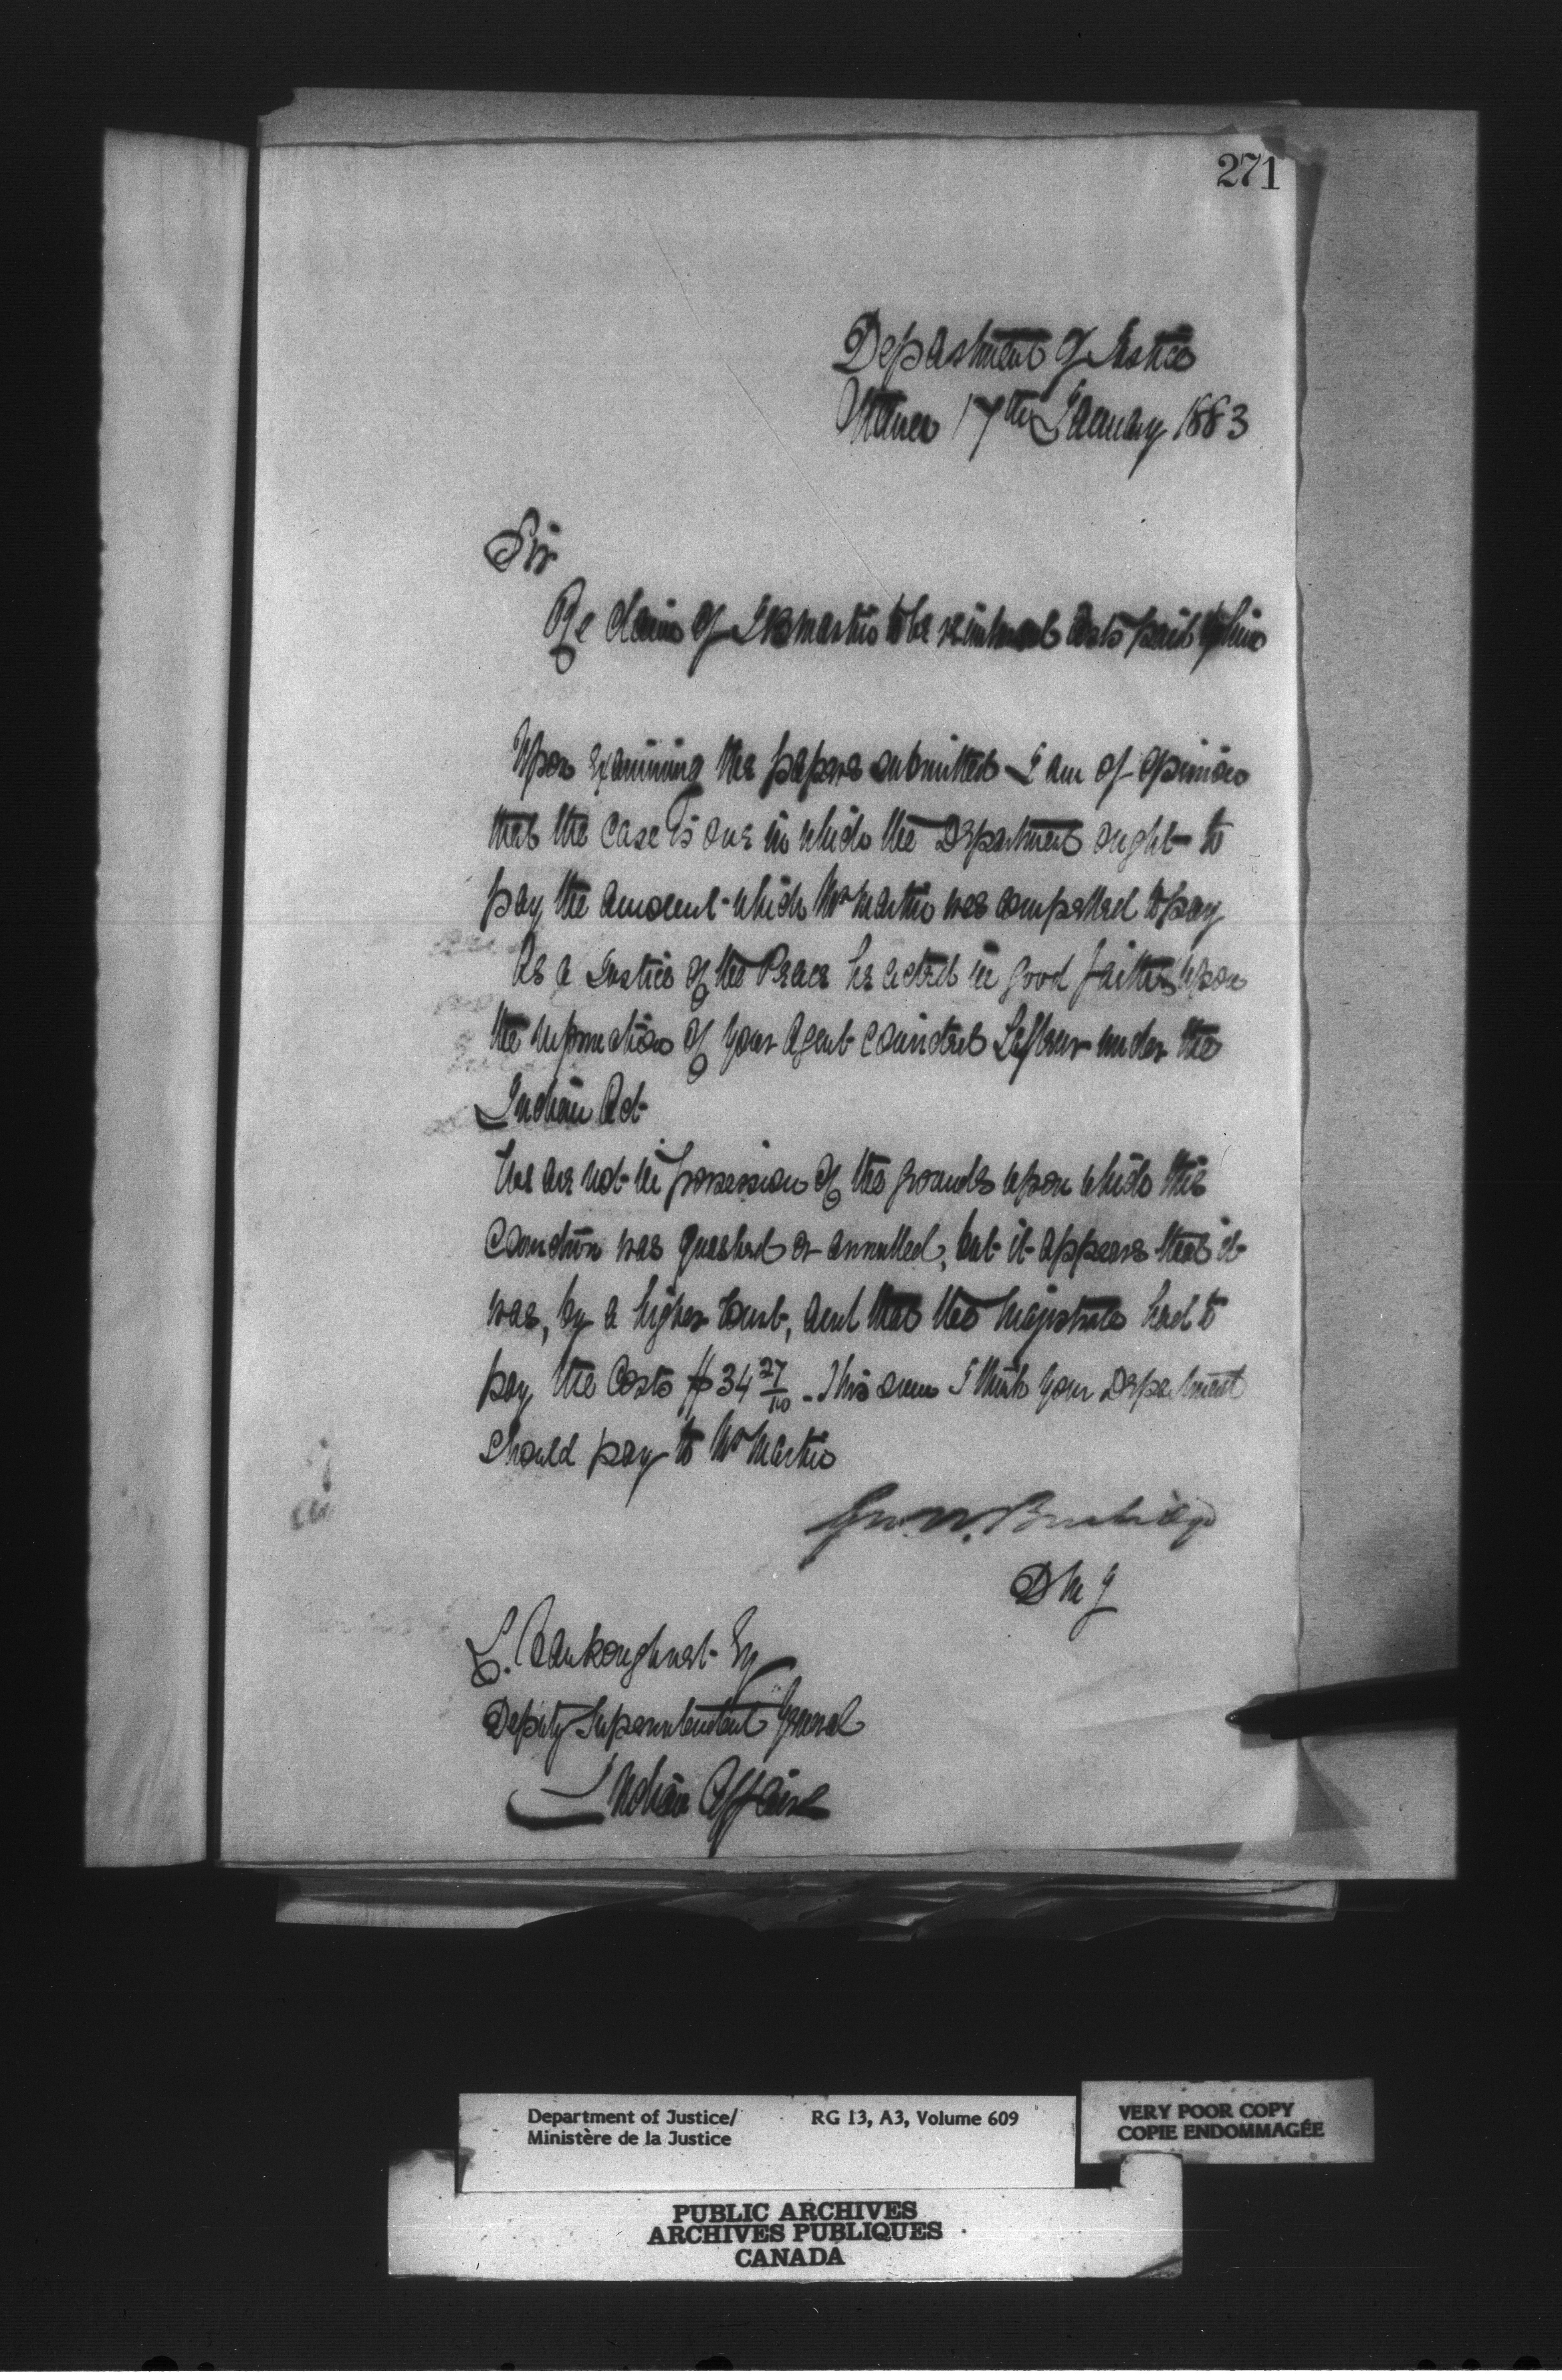 271
Department of Justice
Ottawa 17th January 1883
Sir
Re claim of Martin to be reimbursed costs paid by him
Upon examining the papers submitted I am of opinion
that the case is one in which the Department ought to
pay the amount which Mr Martin was compelled to pay
As a Justice of the Peace he acted in good faith & upon
the information of your Agent convicted under the
Indian Act
We are not in possession of the grounds upon which this
conviction was quashed or annulled, but it appears that it
was, by a higher Court, and that the Magistrate had to
pay the costs $34 27/100 - This sum I think your Department
should pay to Mr Martin
Geo. W. Burbidge
D M J
L. Vankoughnet Esq
Deputy Superintendent General
Indian Affairs
Department of Justice/ RG 13, A3, Volume 609
Ministère de la Justice
VERY POOR COPY
COPIE ENDOMMAGÉE
PUBLIC ARCHIVES
ARCHIVES PUBLIQUES
CANADA